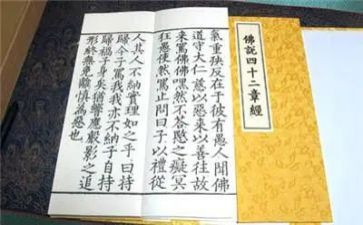 氣重殃反在于彼有愚人聞佛
道守大仁慈以惡來以善往故
來罵佛佛嘿然不答愍之癡冥
狂愚使然罵止問曰子以禮從
人其人不納實理如之乎曰持
歸今子罵我我亦不納子自持
歸禍子身矣猶響應聲影之追
形終無免離慎為惡也
佛說四十二章經